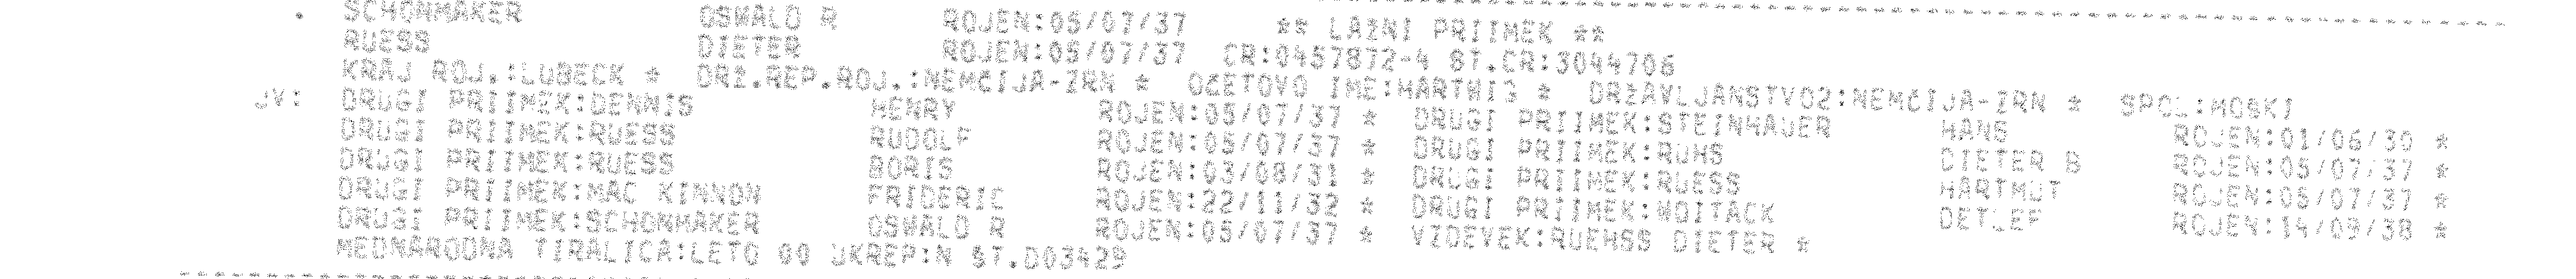 . SCHONMAKER OSWALD R ROJEN:05/07/37 ** LAZNI PRIIMEK **
RUESS DIETER ROJEN:05/07/37 CR:0457872-4 ST.CR:3044706
KRAJ ROJ.:LUBECK * DRZ.REP.ROJ.:NEMCIJA-ZRN * OCETOVO IME: * DRZAVLJANSTVO2:NEMCIJA-ZRN * SPOL:MOSKI
JV: DRUGI PRIIMEK:DENNIS HENRY ROJEN:05/07/37 * DRUGI PRIIMEK:STEINHAUER HANS ROJEN:01/06/30 *
DRUGI PRIIMEK:RUESS RUDOLF ROJEN:05/07/37 * DRUGI PRIIMEK:RUHS DIETER B ROJEN:05/07/37 *
DRUGI PRIIMEK:RUESS BORIS ROJEN:03/08/31 * DRUGI PRIIMEK:RUESS HARTMUT ROJEN:05/07/37 *
DRUGI PRIIMEK:MAC KINNON FRIDERIC ROJEN:22/11/32 * DRUGI PRIIMEK:WOITACK DETLEF ROJEN:14/09/38 *
DRUGI PRIIMEK:SCHONMAKER OSWALD R ROJEN:05/07/37 * VZDEVEK:RUEHSS DIETER *
MEDNARODNA TIRALICA:LETO 00 UKREP:N ST.D03429